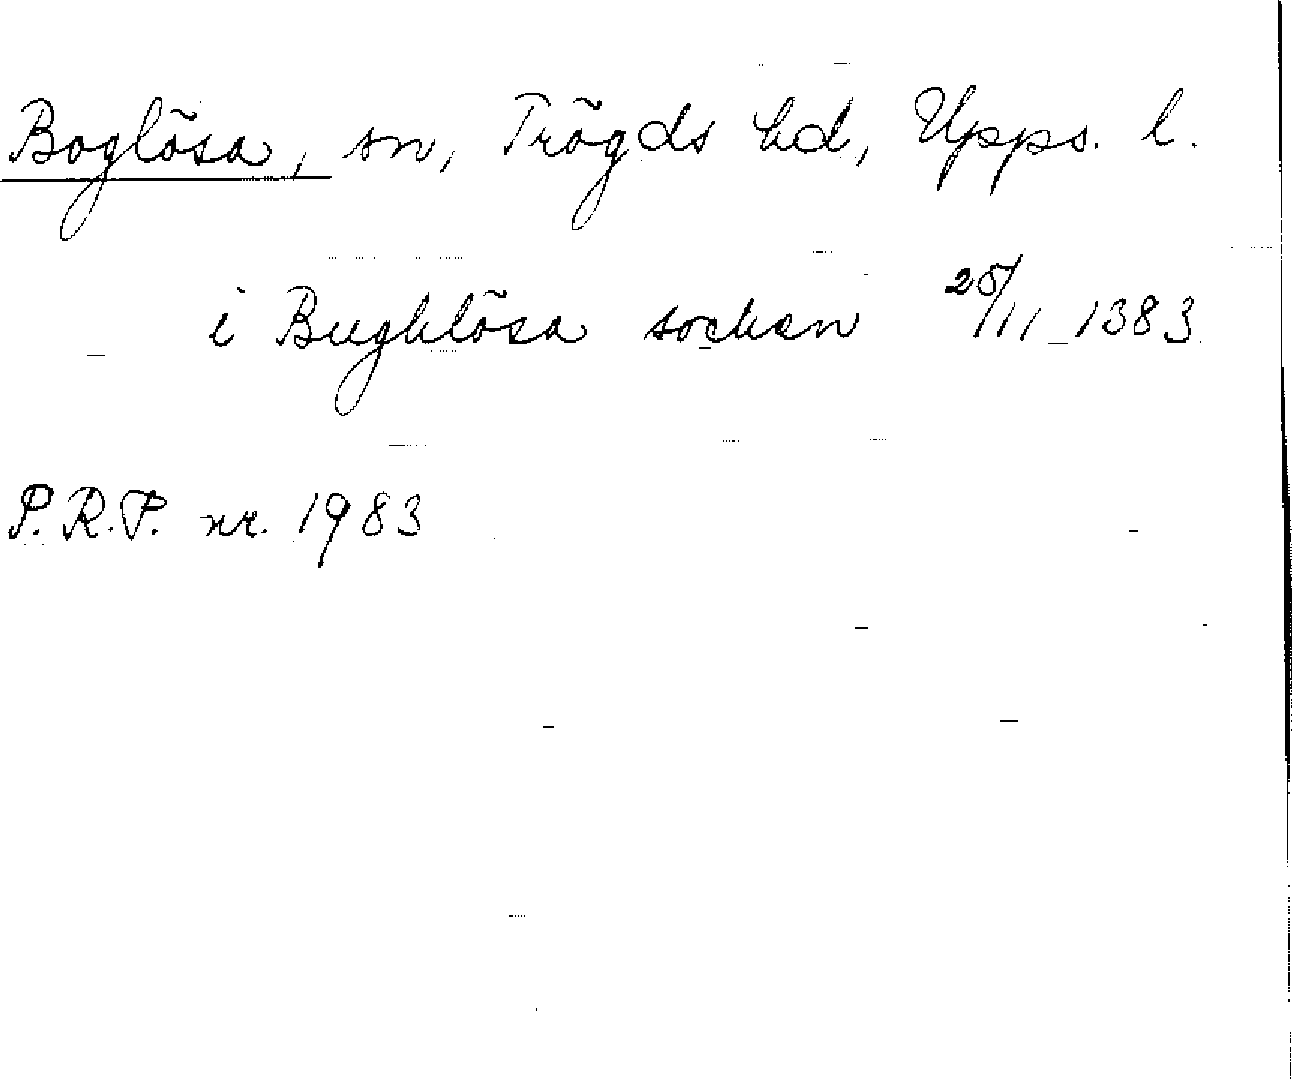 Boglösa, sn, Trögds hd, Upps. l.
i Bughlösa sockan 25/11 1383
P.R.P. nr. 1983